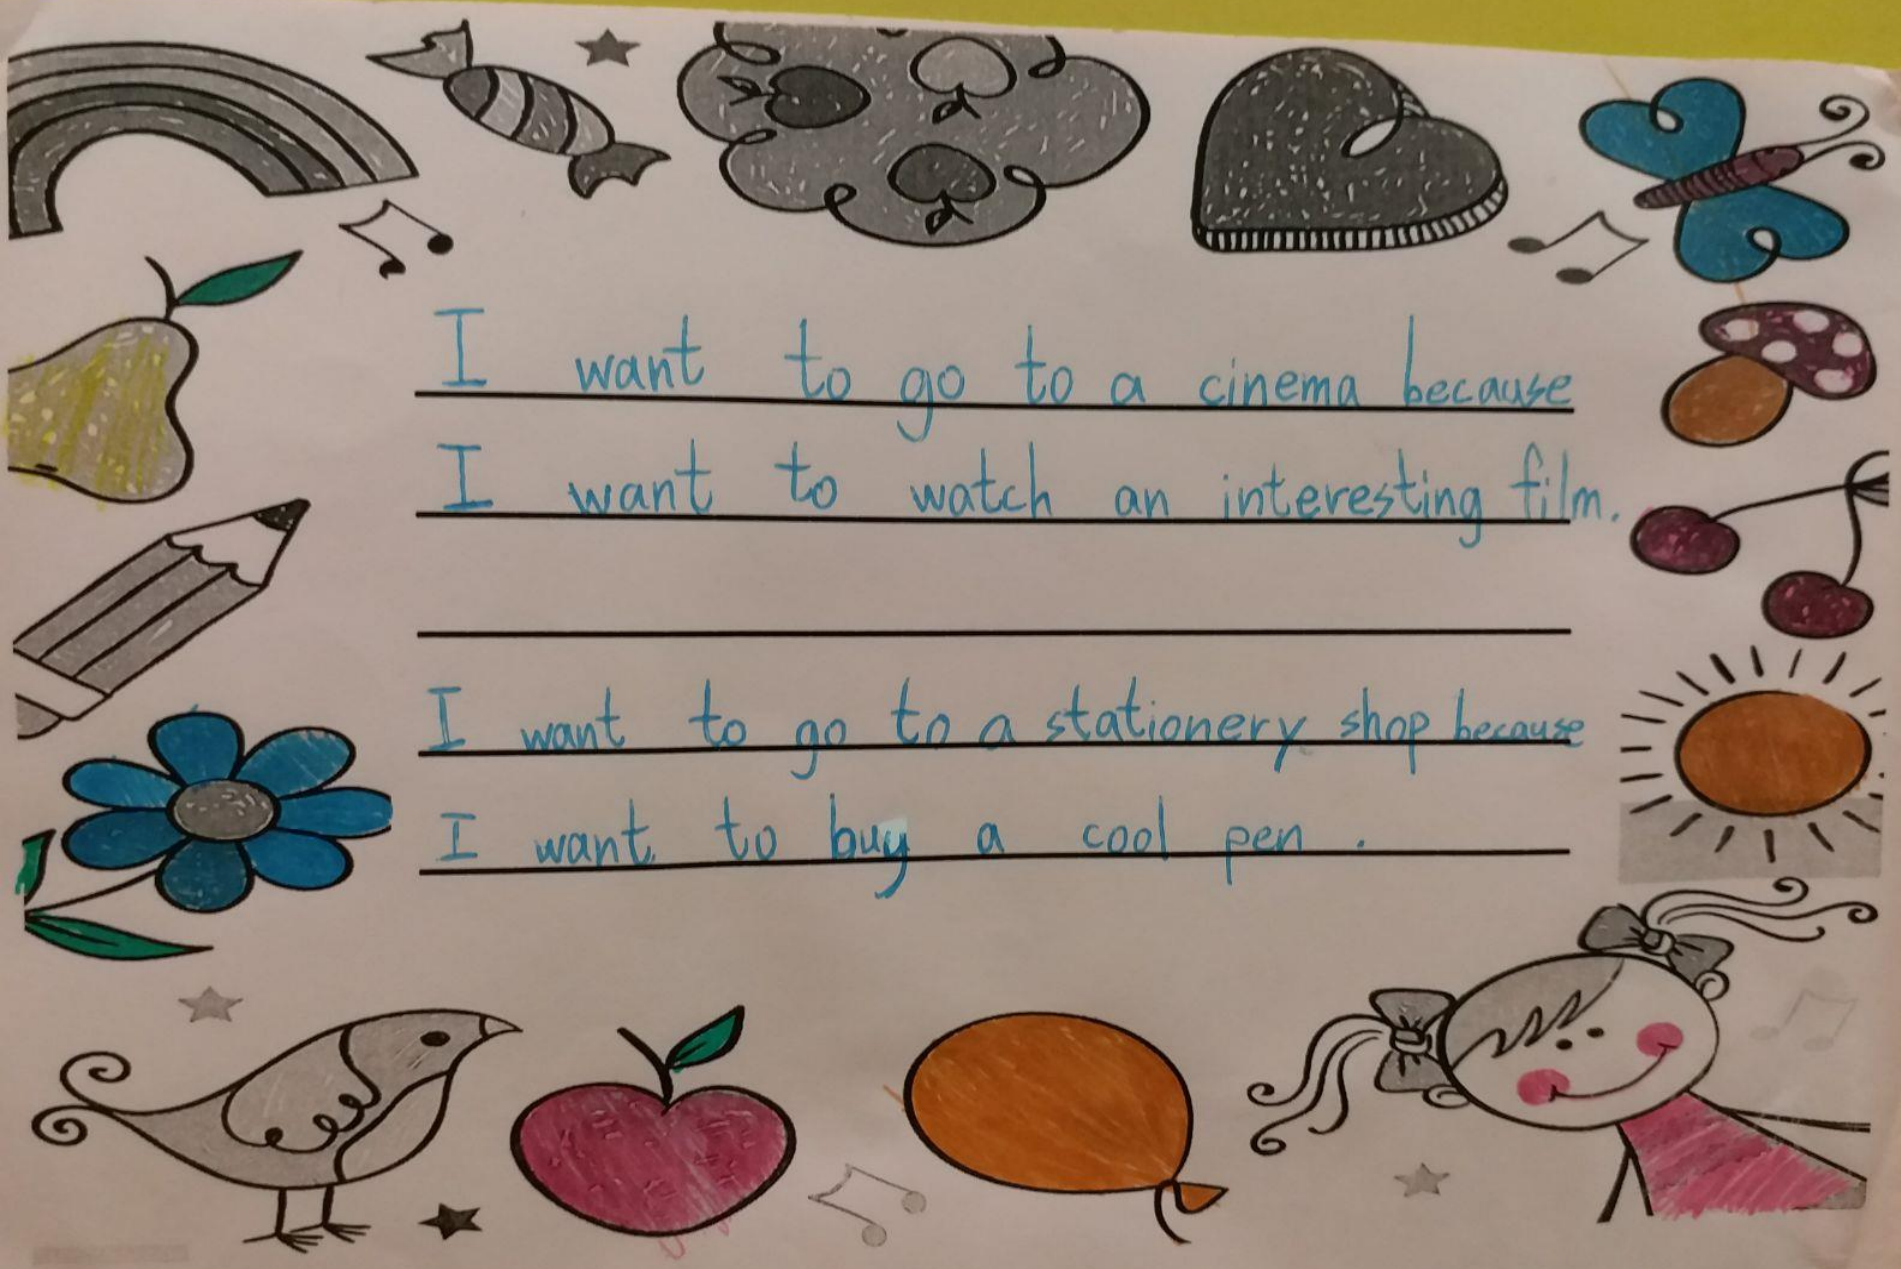 I want to go to a cinema because
I want to watch an interesting film.
I want to go to a stationery shop because
I want to buy a cool pen.